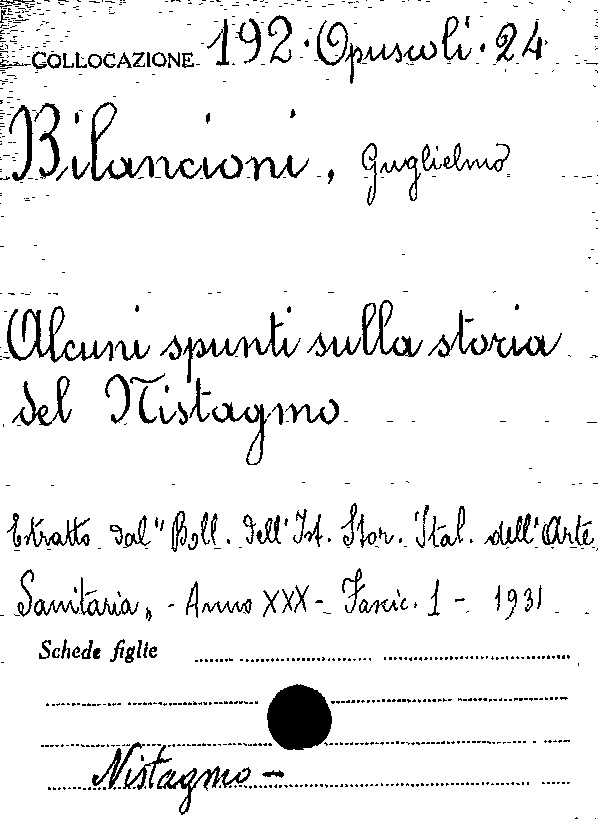 COLLOCAZIONE 192·Opuscoli·24
Bilancioni, Guglielmo
Alcuni spunti sulla storia
del Nistagmo
Estratto dal "Boll. dell'Ist. Stor. Ital. dell'Arte
Sanitaria„ - Anno XXX - Fascic. 1 - 1931
Schede figlie
Nistagmo -